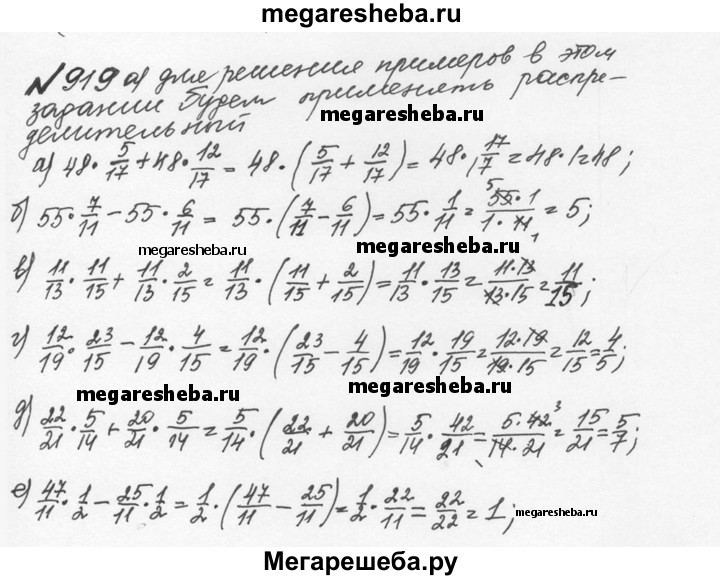 megaresheba.ru
№919 а) для решения примеров в этом
задании будем применять распре-
megaresheba.ru
делительный
а) 48 · 5/17 + 48 · 12/17 = 48 · (5/17 + 12/17) = 48 · 17/17 = 48 · 1 = 48;
б) 55 · 7/11 - 55 · 6/11 = 55 · (7/11 - 6/11) = 55 · 1/11 = 55 · 1/1 · 11 = 5;
megaresheba.ru megaresheba.ru
в) 11/13 · 11/15 + 11/13 · 2/15 = 11/13 · (11/15 + 2/15) = 11/13 · 13/15 = 11 · 13/13 · 15 = 11/15;
г) 12/19 · 23/15 - 12/19 · 4/15 = 12/19 · (23/15 - 4/15) = 12/19 · 19/15 = 12 · 19/19 · 15 = 12/15 = 4/5;
megaresheba.ru megaresheba.ru
д) 22/21 · 5/14 + 20/21 · 5/14 = 5/14 · (22/21 + 20/21) = 5/14 · 42/21 = 5 · 42 3/14 · 21 = 15/21 = 5/7;
е) 47/11 · 1/2 - 25/11 · 1/2 = 1/2 · (47/11 - 25/11) = 1/2 · 22/11 = 22/22 = 1;
megaresheba.ru
Мегарешеба.ру